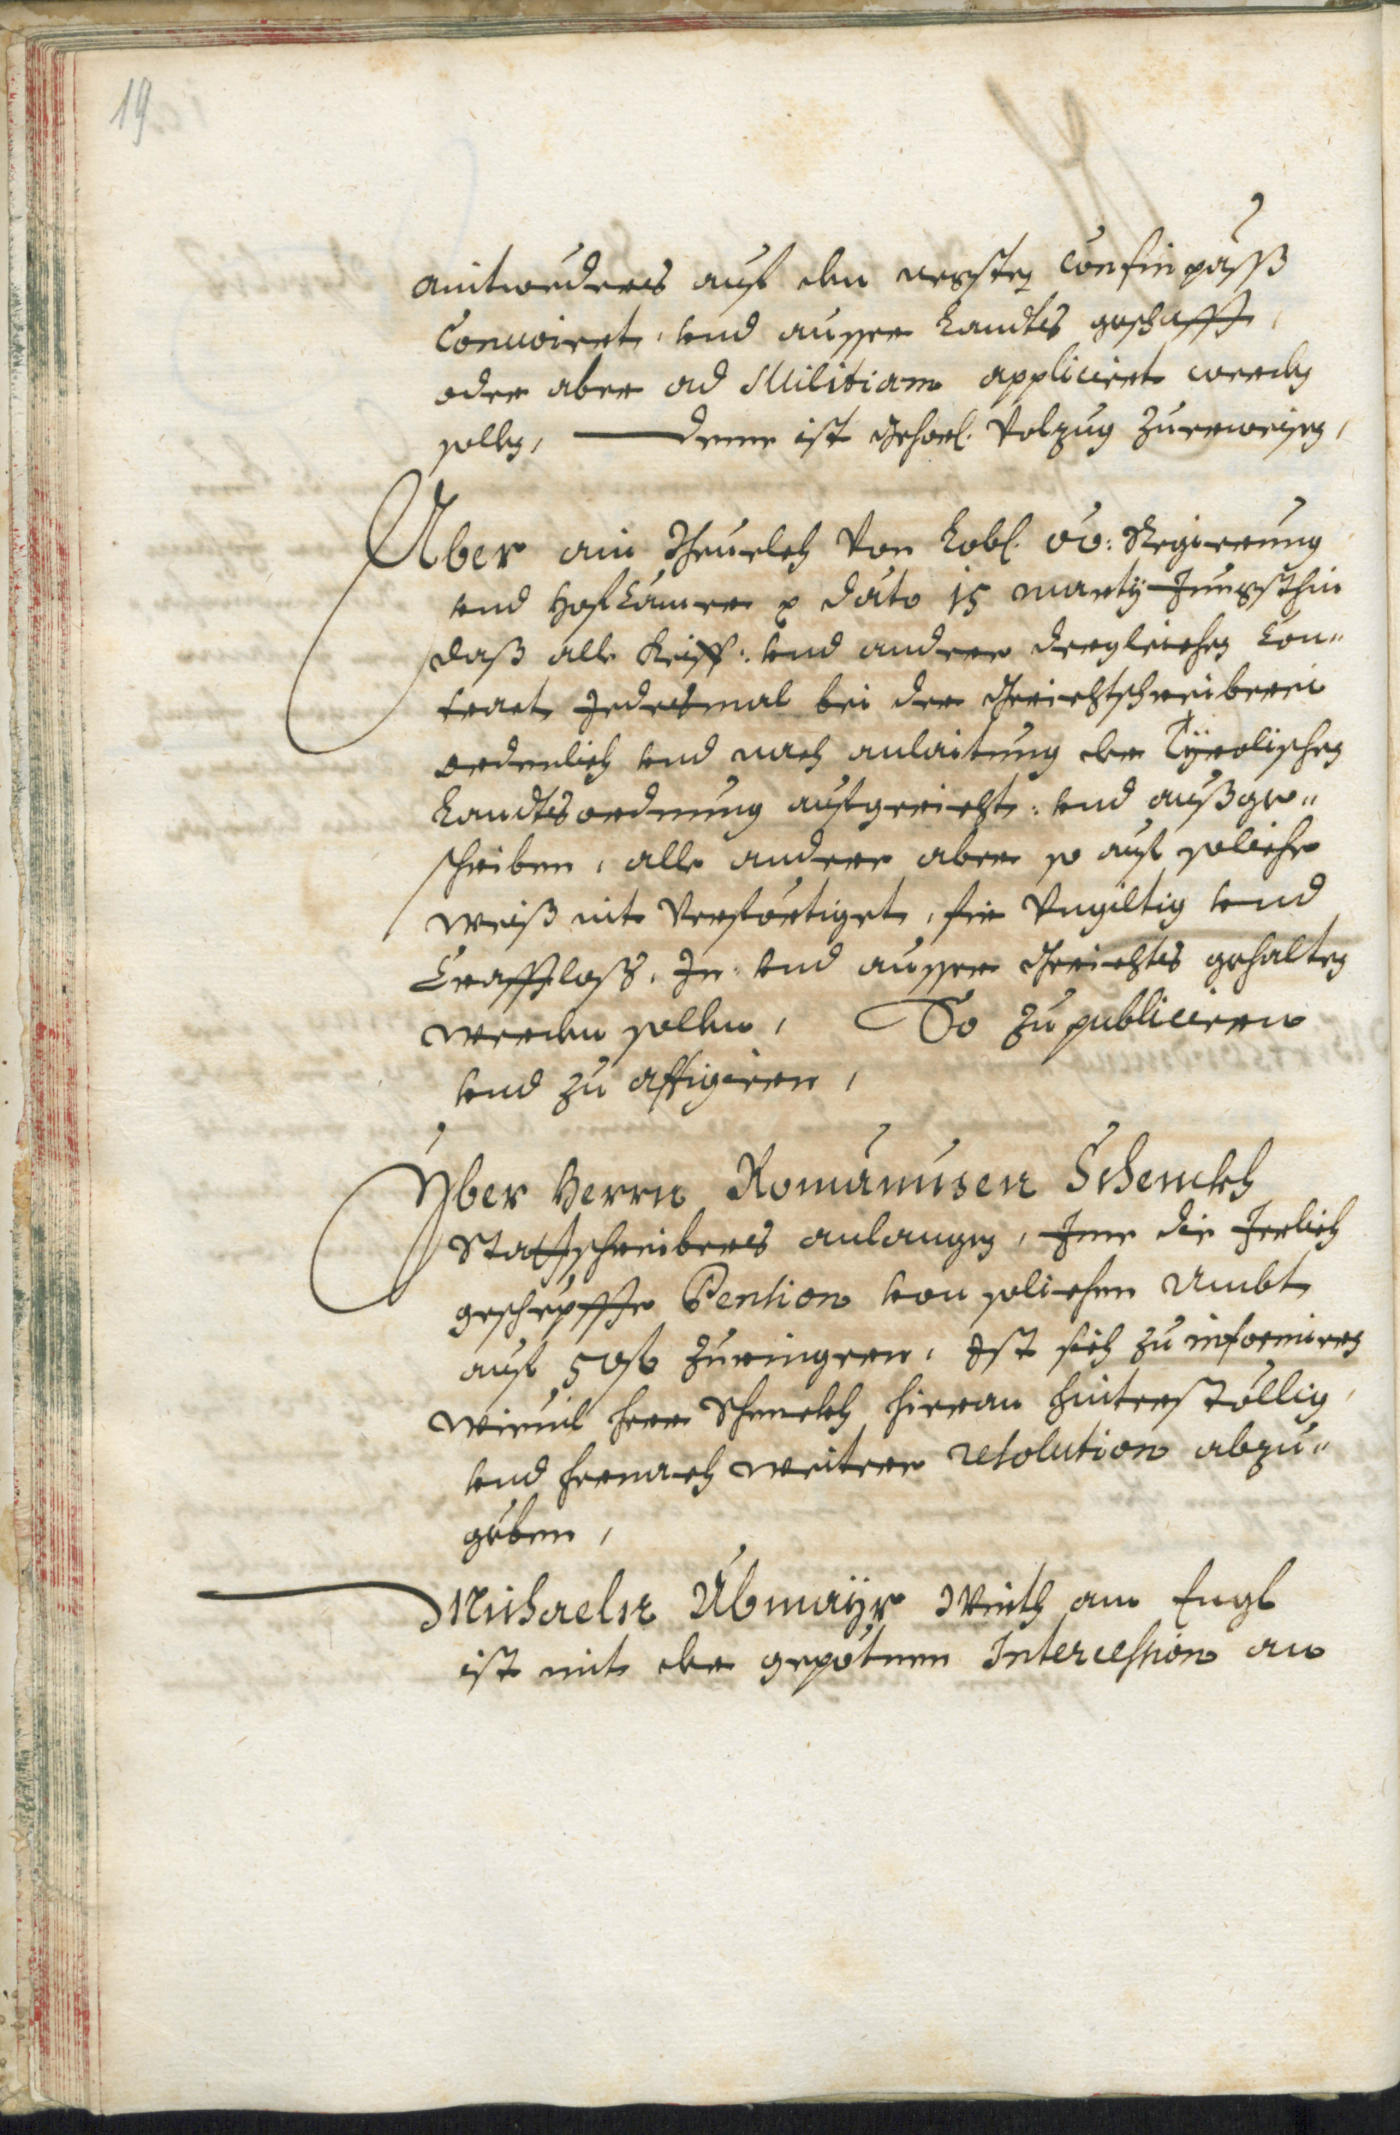 19
aintweders auf den negsten Confinpäss
Convoiert, und ausser Landts geschafft,
oder aber ad Militiam appliciert werden
sollen, denne ist Gehorl. Volzug zuerweisen,
Über ain Gevelch von Lobl. oö: Regierung
und Hofcamer dato 15 marty Jüngsthin
daß alle Keüff: und andere dergleichen Con„
tract Jedesmal bei der Gerichtschreiberei
ordenlich und nach anlaitung der Tÿrolischen
Landtsordnung aufgericht: und außge„
schriben, alle andere aber so auf soliche
weiß nit verförtiget, für Ungiltig und
Crafftloß, In: und ausser Gerichts gehalten
werden sollen, So zu publicieren
und zu affigieren,
Yber Herrn Romanusen Schenckh
Statschreibers anlangen, Ime die Jerlich
geschöpffte Pention von solichem Ambt
auf 50 f zuringeren, Ist sich zu informieren
wievil Herr Schenckh hieran hinterstöllig,
und hernach weitere resolution abzu„
geben,
Michaeln Ubmaÿr Wirth am Engl
ist mit der gepötnen Intercession an